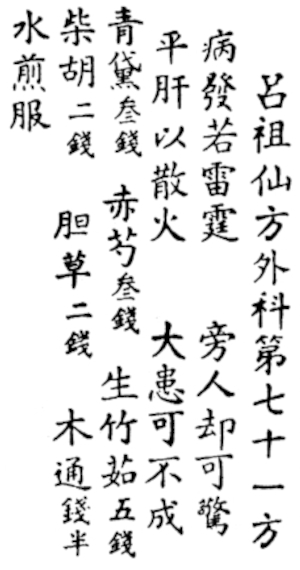 呂祖仙方外科第七十一方
病發若雷霆　旁人却可驚
平肝以散火　大患可不成
青黛叁錢　赤芍叁錢　生竹茹五錢
柴胡二錢　胆草二錢　木通錢半
水煎服